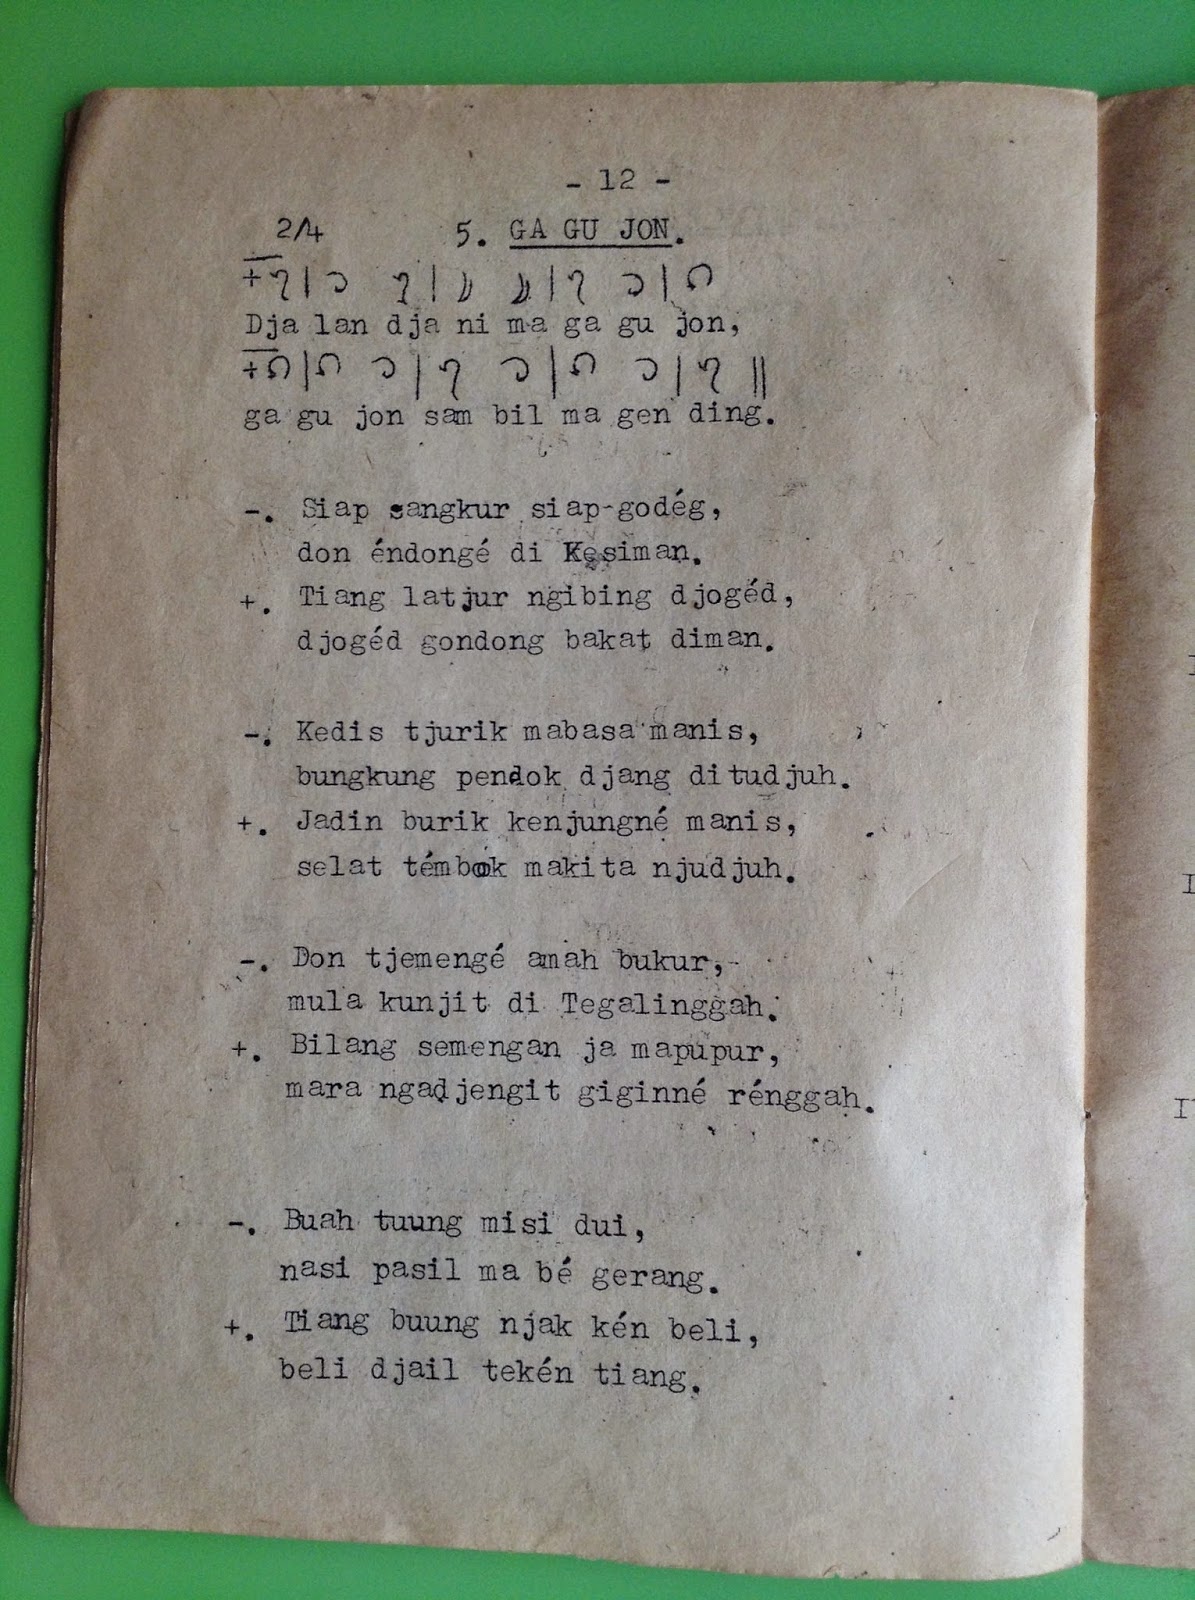 - 12 -
2/4 5. GA GU JON.
Dja lan dja ni ma ga gu jon,
ga gu jon sam bil ma gen ding.
-. Siap sangkur siap-godég,
don éndongé di Kesiman.
+. Tiang latjur ngibing djogéd,
djogéd gondong bakat diman.
-. Kedis tjurik mabasa manis,
bungkung pendok djang ditudjuh.
+. Jadin burik kenjungné manis,
selat témbok makita njudjuh.
-. Don tjemengé amah bukur,
mula kunjit di Tegalinggah.
+. Bilang semengan ja mapupur,
mara ngadjengit giginné rénggah.
-. Buah tuung misi dui,
nasi pasil ma bé gerang.
+. Tiang buung njak kén beli,
beli djail tekén tiang.